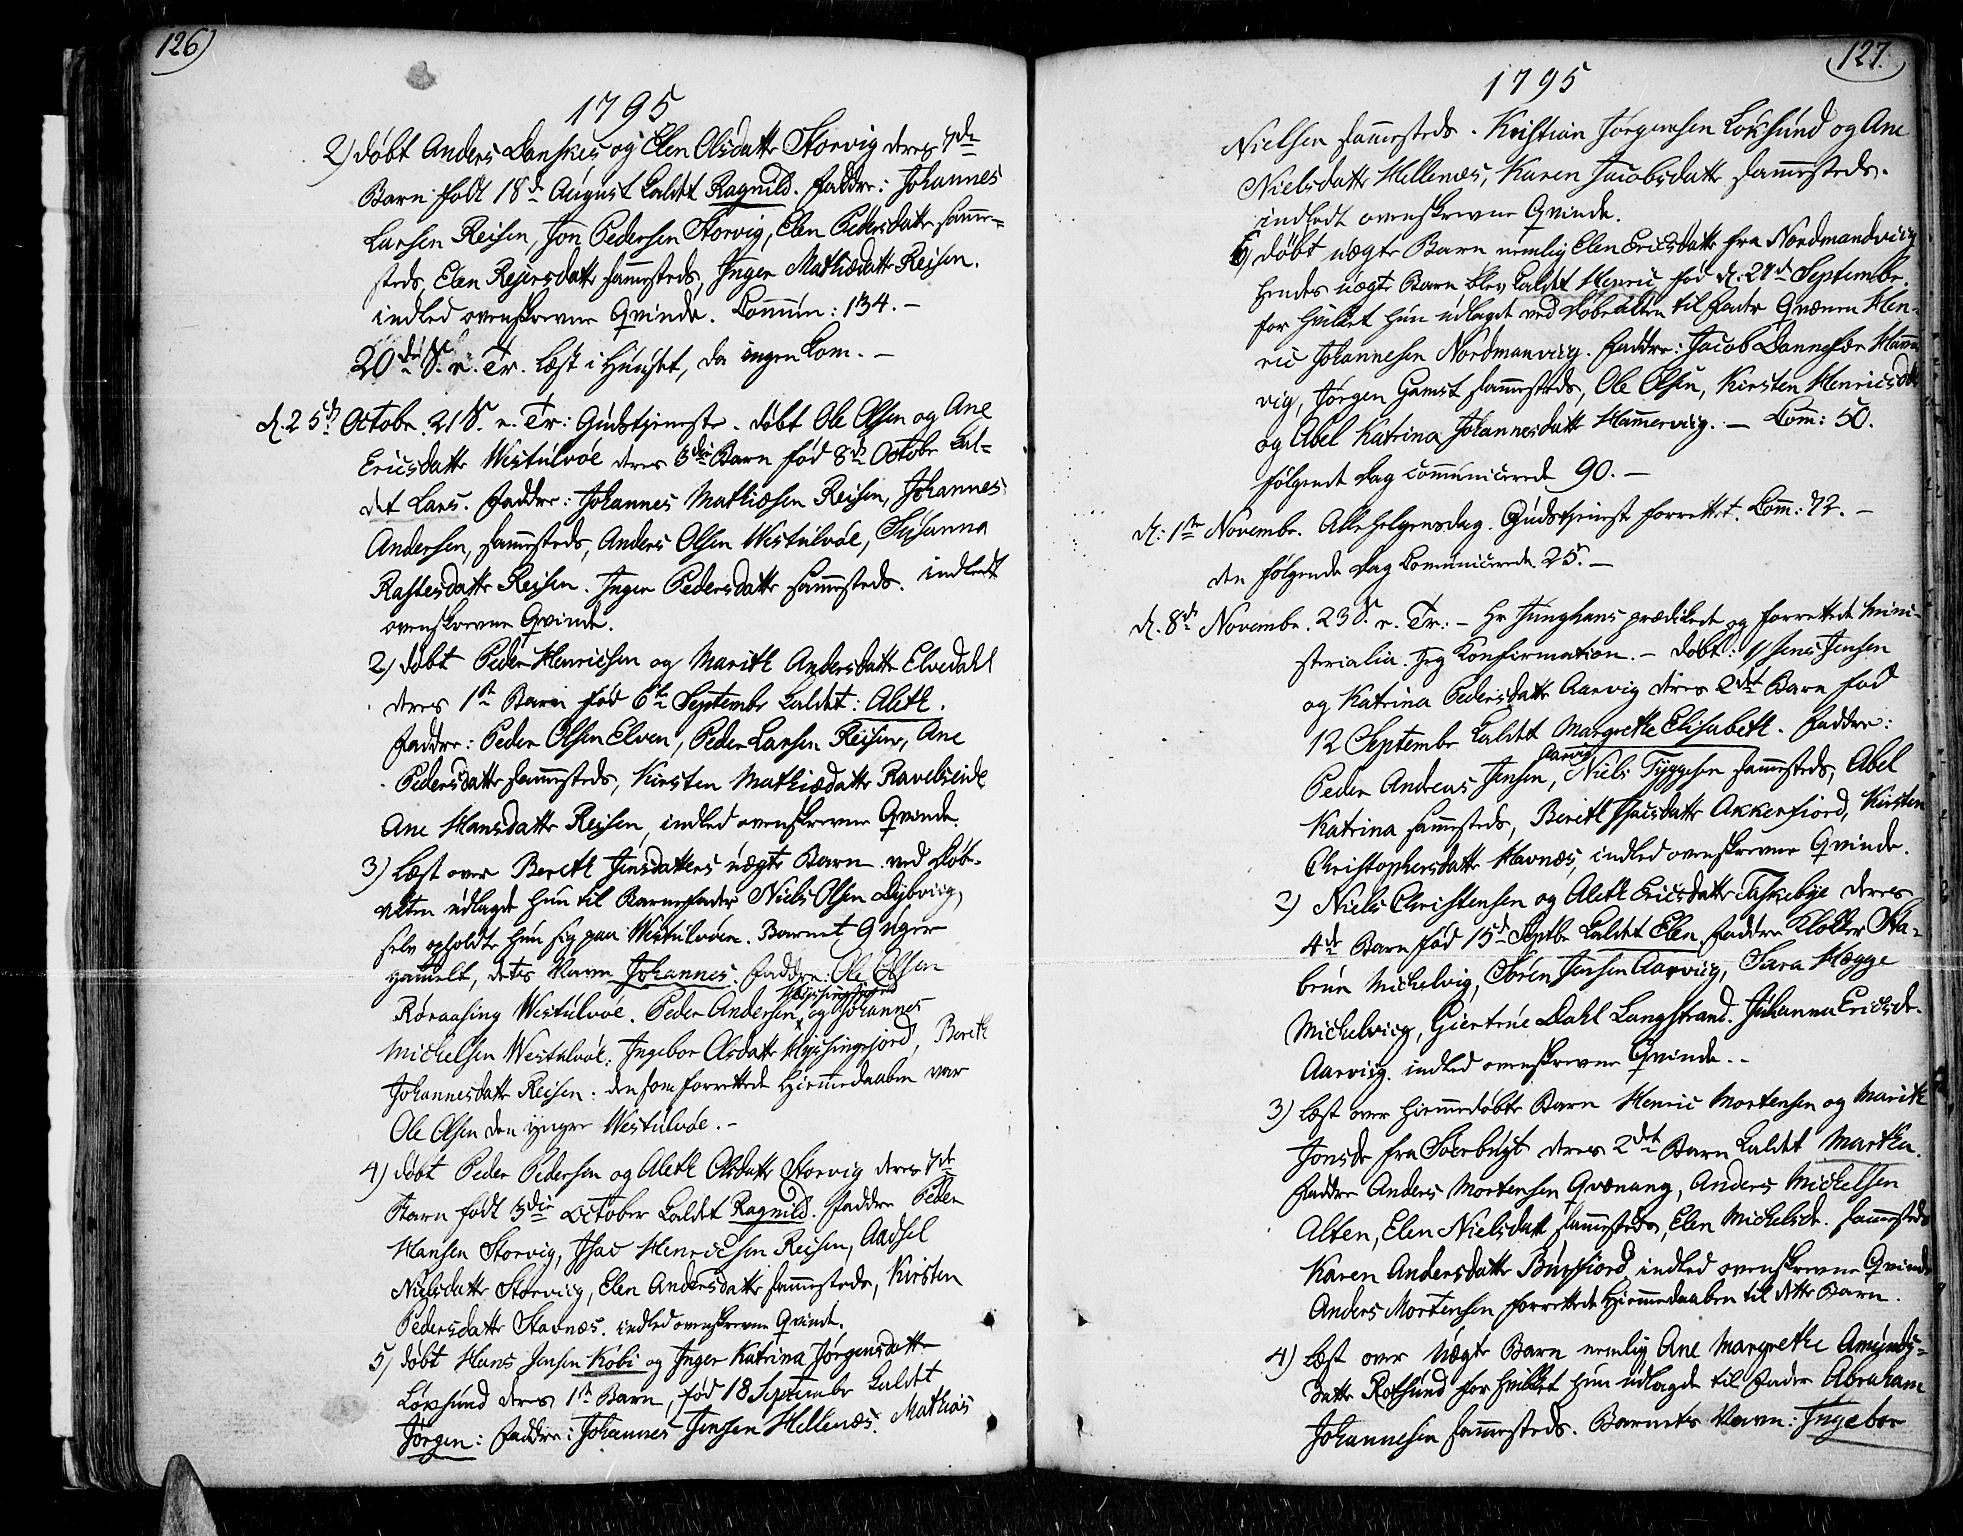 126)
1795
2) Døbt Anders Danskes og Elen Olsdattr Storvig deres 7de
Barn født 18de August kaldet Ragnild. Faddre: Johannes
Larsen Reisen, Jon Pedersen Storvig, Elen Pedersdattr samme-
steds, Elen Reiersdattr sammesteds, Inger Mathisdattr Reisen.
indled ovenskrevne Qvinde. Commun: 134. –
20de S. n. Tr. læst i Huuset, da ingen kom. –
d. 25de Octobr. 21 S. n. Tr: Gudstjeneste. døbt Ole Olsen og Ane
Ericsdattr Westulvøe deres 3die Barn fød 8de Octobr kal-
det Lars. Faddre: Johannes Mathiesen Reisen, Johannes
Andersen, sammesteds, Anders Olsen Westulvøe, Susanna
Rastesdattr Reisen. Inger Pedersdattr sammesteds. indledt
ovenskrevne Qvinde.
2) døbt Peder Henricsen og Marith Andersdattr Elvedahl
deres 1te Barn fød 6te Septembr kaldet: Aleth.
Faddre: Peder Olsen Elven, Peder Larsen Reisen, Ane
Pedersdattr sammesteds, Kirsten Mathisdattr Ravelseide
Ane Hansdattr Reisen, indled ovenskrevne Qvinde.
3) Læst over Bereth Jensdatters uægte Barn ved Døbe-
velten udlagde hun til Barnefader Niels Olsen Dybvig,
selv opholdte hun sig paa Westulvøen. Barnet 9 uger
gammelt, dets Navn Johannes. Faddre: Ole Olsen
Røraasing Westulvøe. Peder Andersen og Johannes
Michelsen Westulvøe: Ingebor Olsdattr Mejsingfjord, Bereth
Johannesdattr Reisen: den som forrettede Hiemmedaaben var
Ole Olsen den yngre Westulvøe. –
4) døbt Peder Pedersen og Aleth Olsdattr Storvig deres 7de
Barn født 3die October kaldet Ragnild. Faddre Peder
Hansen Storvig, Isac Henricsen Reisen, Aadsel
Nielsdattr Storvig, Elen Andersdattr sammesteds, Kirsten
Pedersdattr Stavnæs. indled ovenskrevne Qvinde.
5) døbt Hans Jensen Kobi og Inger Katrina Jørgensdattr
Løksund deres 1te Barn, fød 18 Septembr kaldet
Jørgen: Faddre: Johannes Jensen Hellenæs. Mathias
127.
1795
Nielsen sammesteds. Kristian Jørgensen Løksund og Ane
Nielsdattr Hellenæs, Karen Jacobsdattr sammesteds.
indledt ovenskrevne Qvinde.
6) døbt uægte Barn nemlig Elen Ericsdattr fra Nordmandvig
hendes uægte Barn blev kaldet Henric fød d: 27de Septembr.
for hvilket hun udlagde ved Døbevelten til Fader Qvænen Hen-
ric Johannesen Nordmanvig. Faddre: Jacob Dannefær Hamer
vig, Jørgen Gamst sammesteds, Ole Olsen, Kirsten Henricsdttr
og Abel Katrina Johannesdattr Hamervig. – Com: 50.
følgende Dag communicerede 90. –
d: 1te Novembr. Allehelgensdag. Gudstjenest forrettet. Com: 72. –
den følgende Dag Communicerede 25. –
d. 8de Novembr. 23 S. n. Tr: – Hr Junghans prædikede og forrettede mini-
sterialia. Jeg Konfirmation. – døbt: 1) Jens Jensen
og Katrina Pedersdattr Aarvig deres 2det Barn fød
12 Septembr kaldet Margrethe Elisabeth. Faddre:
Aarvig
Peder Andreas Jensen, Niels Tyggesen sammesteds, Abel
Katrina sammesteds, Bereth Isacsdattr Akkerfiord, Kirsten
Christophersdattr Havnæs, indled ovenskrevne Qvinde.
2) Niels Christensen og Aleth Ericsdattr Taskebye deres
4de Barn fød 15de Septbr kaldet Elen. Faddre Klokker Sta-
brun Michelvig, Søren Jensen Aarvig, Sara Hegge
Michelvig, Giertrue Dahl Langstrand. Johanna Ericsdr.
Aarvig. indled ovenskrevne Qvinde. –
3) Læst over hiemmedøbte Barn Henric Mortensen og Marith
Jonsdr fra Soerbugt deres 2det Barn kaldet Martha.
Faddre Anders Mortensen Qvænang, Anders Michelsen
Alten, Elen Nielsdattr sammesteds, Elen Michelsdr. sammesteds
Karen Andersdattr Burfiord, indled ovenskrevne Qvinde
Anders Mortensen forrettede Hiemmedaaben til dette Barn.
4) Læst over uægte Barn nemlig Ane Margrethe Amunds-
dattr Rotsund for hvilket hun udlagde til Fader Abraham
Johannesen sammesteds. Barnets Navn: Ingebor